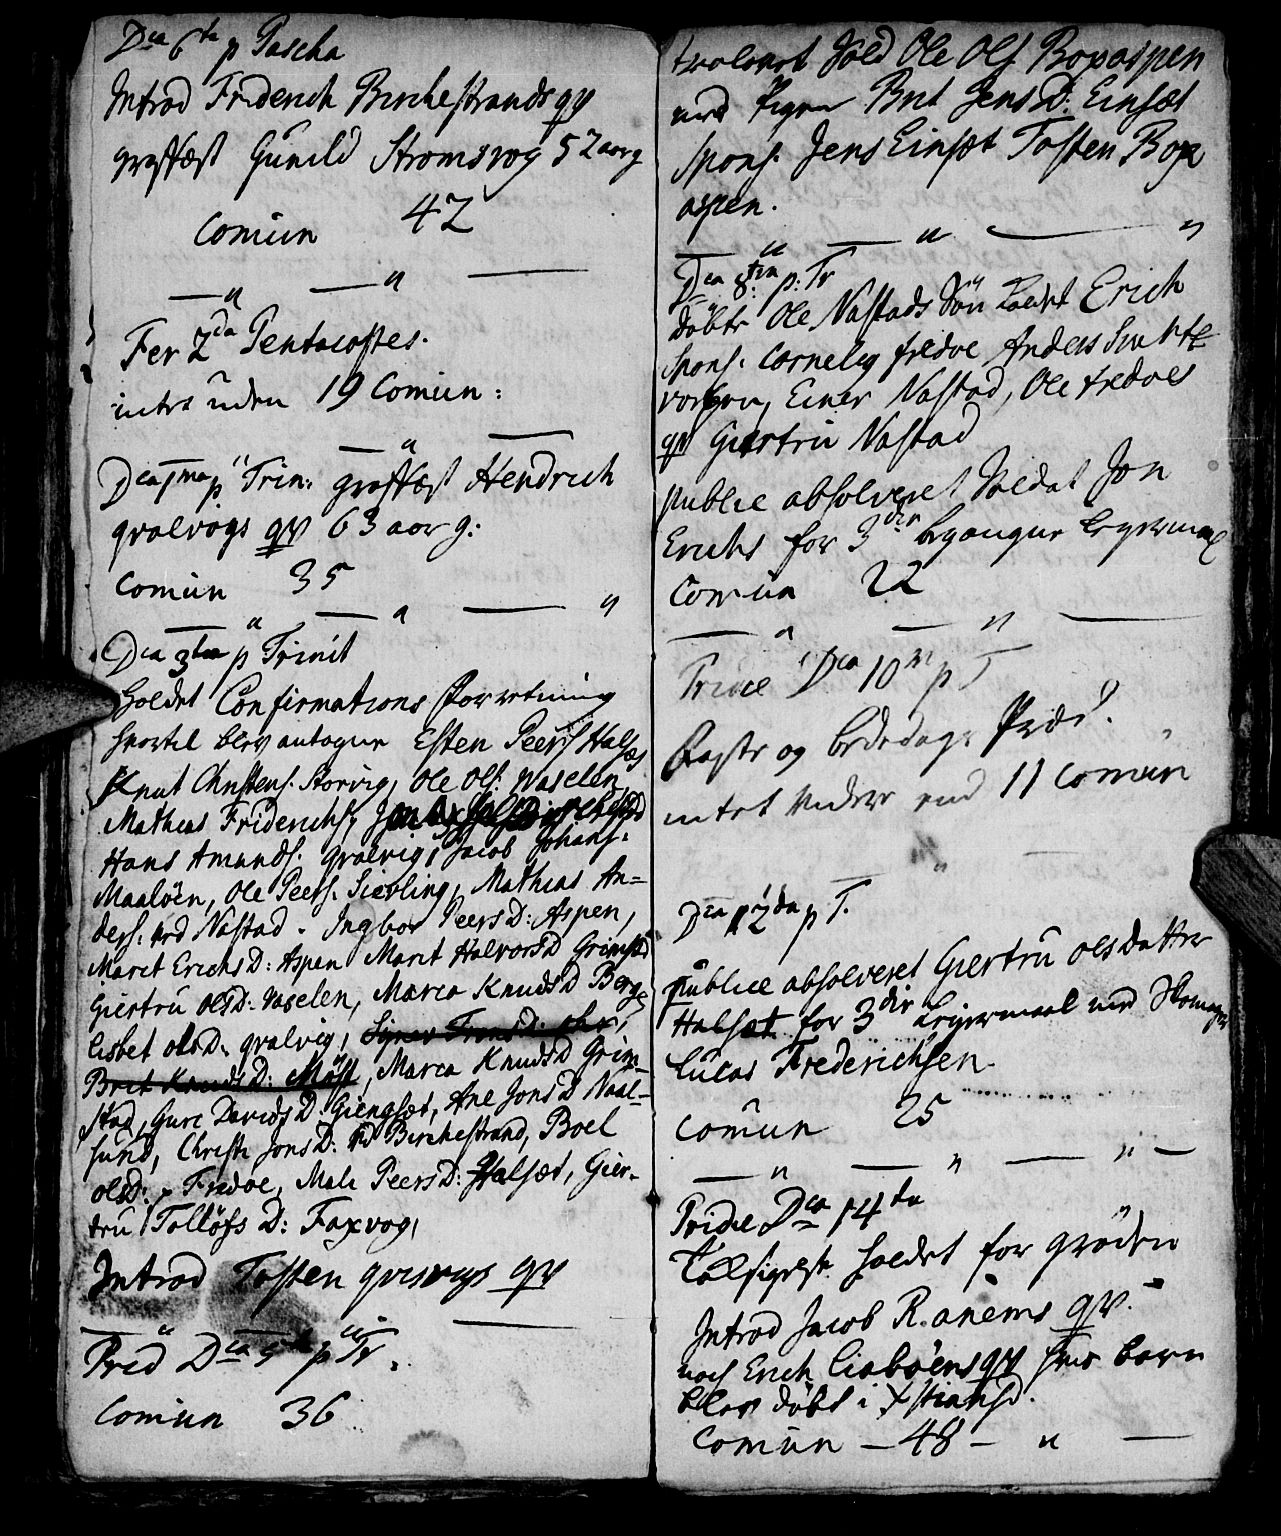 Dca 6ta p Pascha
Introd Friderich Birchestrands qv
graffæst Gunild Strømsvog 52 aar g
Comun 42
Fer 2da Pentacostes.
intet uden 19 Comun:
Dca 1ma p Trin: graffæst Hendrich
qvalvogs qv 63 aar g:
Comun 35
Dca 3tia p Trinit
holdet Confirmations Forretning
hvortil blev antagne Esten Peers Halsæt
Knut Christens. Storvig, Ole Ols: Vaselen
Mathias Friderichs,
Hans Amunds. qvalvig, Jacob Johans.
Maaløen, Ole Peers. Sierling, Mathias An=
ders. ved Nastad. Ingbor Peers D: Aspen,
Marit Erichs D: Aspen Marit Halvors D Grimstad
Giertru Ols D: Vaselen, Marea Knuds D Berge
lisbet Ols D: qvalvig,
Brit Knuds D: Møst, Marea Knuds D Grim=
stad, Guri Davids D Giengsæt, Ane Jons D Naal=
sund, Christi Jons D: Birchestrand, Boel
Ols D: Fredøe, Mali Peers D: Halsæt, Gier=
tru Tolløfs D: Faxvog,
Introd Tosten qvisvigs qv
Prid Dca 5ta p Tr.
Comun 36
trolovet Sold Ole Ols Bopaspen
med Pigen Brit Jens D: Einsæt
spons. Jens Einsæt Tosten Bop
aspen.
Dca 8tva p: Tr
døbte Ole Nastads Søn kaldet Erich
spons. Cornelig fredøe Anders
Einer Nastad, Ole fredøes
qv Giertru Nastad
publice absolveret Soldat Jon
Erichs for 3die begangne leyermaal
Comun 22
Pridie Dca 10m p T
Faste og bededags Præd.
intet videre end 11 Comun
Dca 12da p T.
publice absolveret Giertru Olsdatter
Halsæt for 3die leyermaal med
Lucas Frederichsen
Comun 25
Pridie Dca 14ta
Taksigelse holdet for grøden
Introd Jacob R.anems qv.
noch Erich liabøens qv hvis barn
blev døbt i Xstiansd.
Comun – 48 –